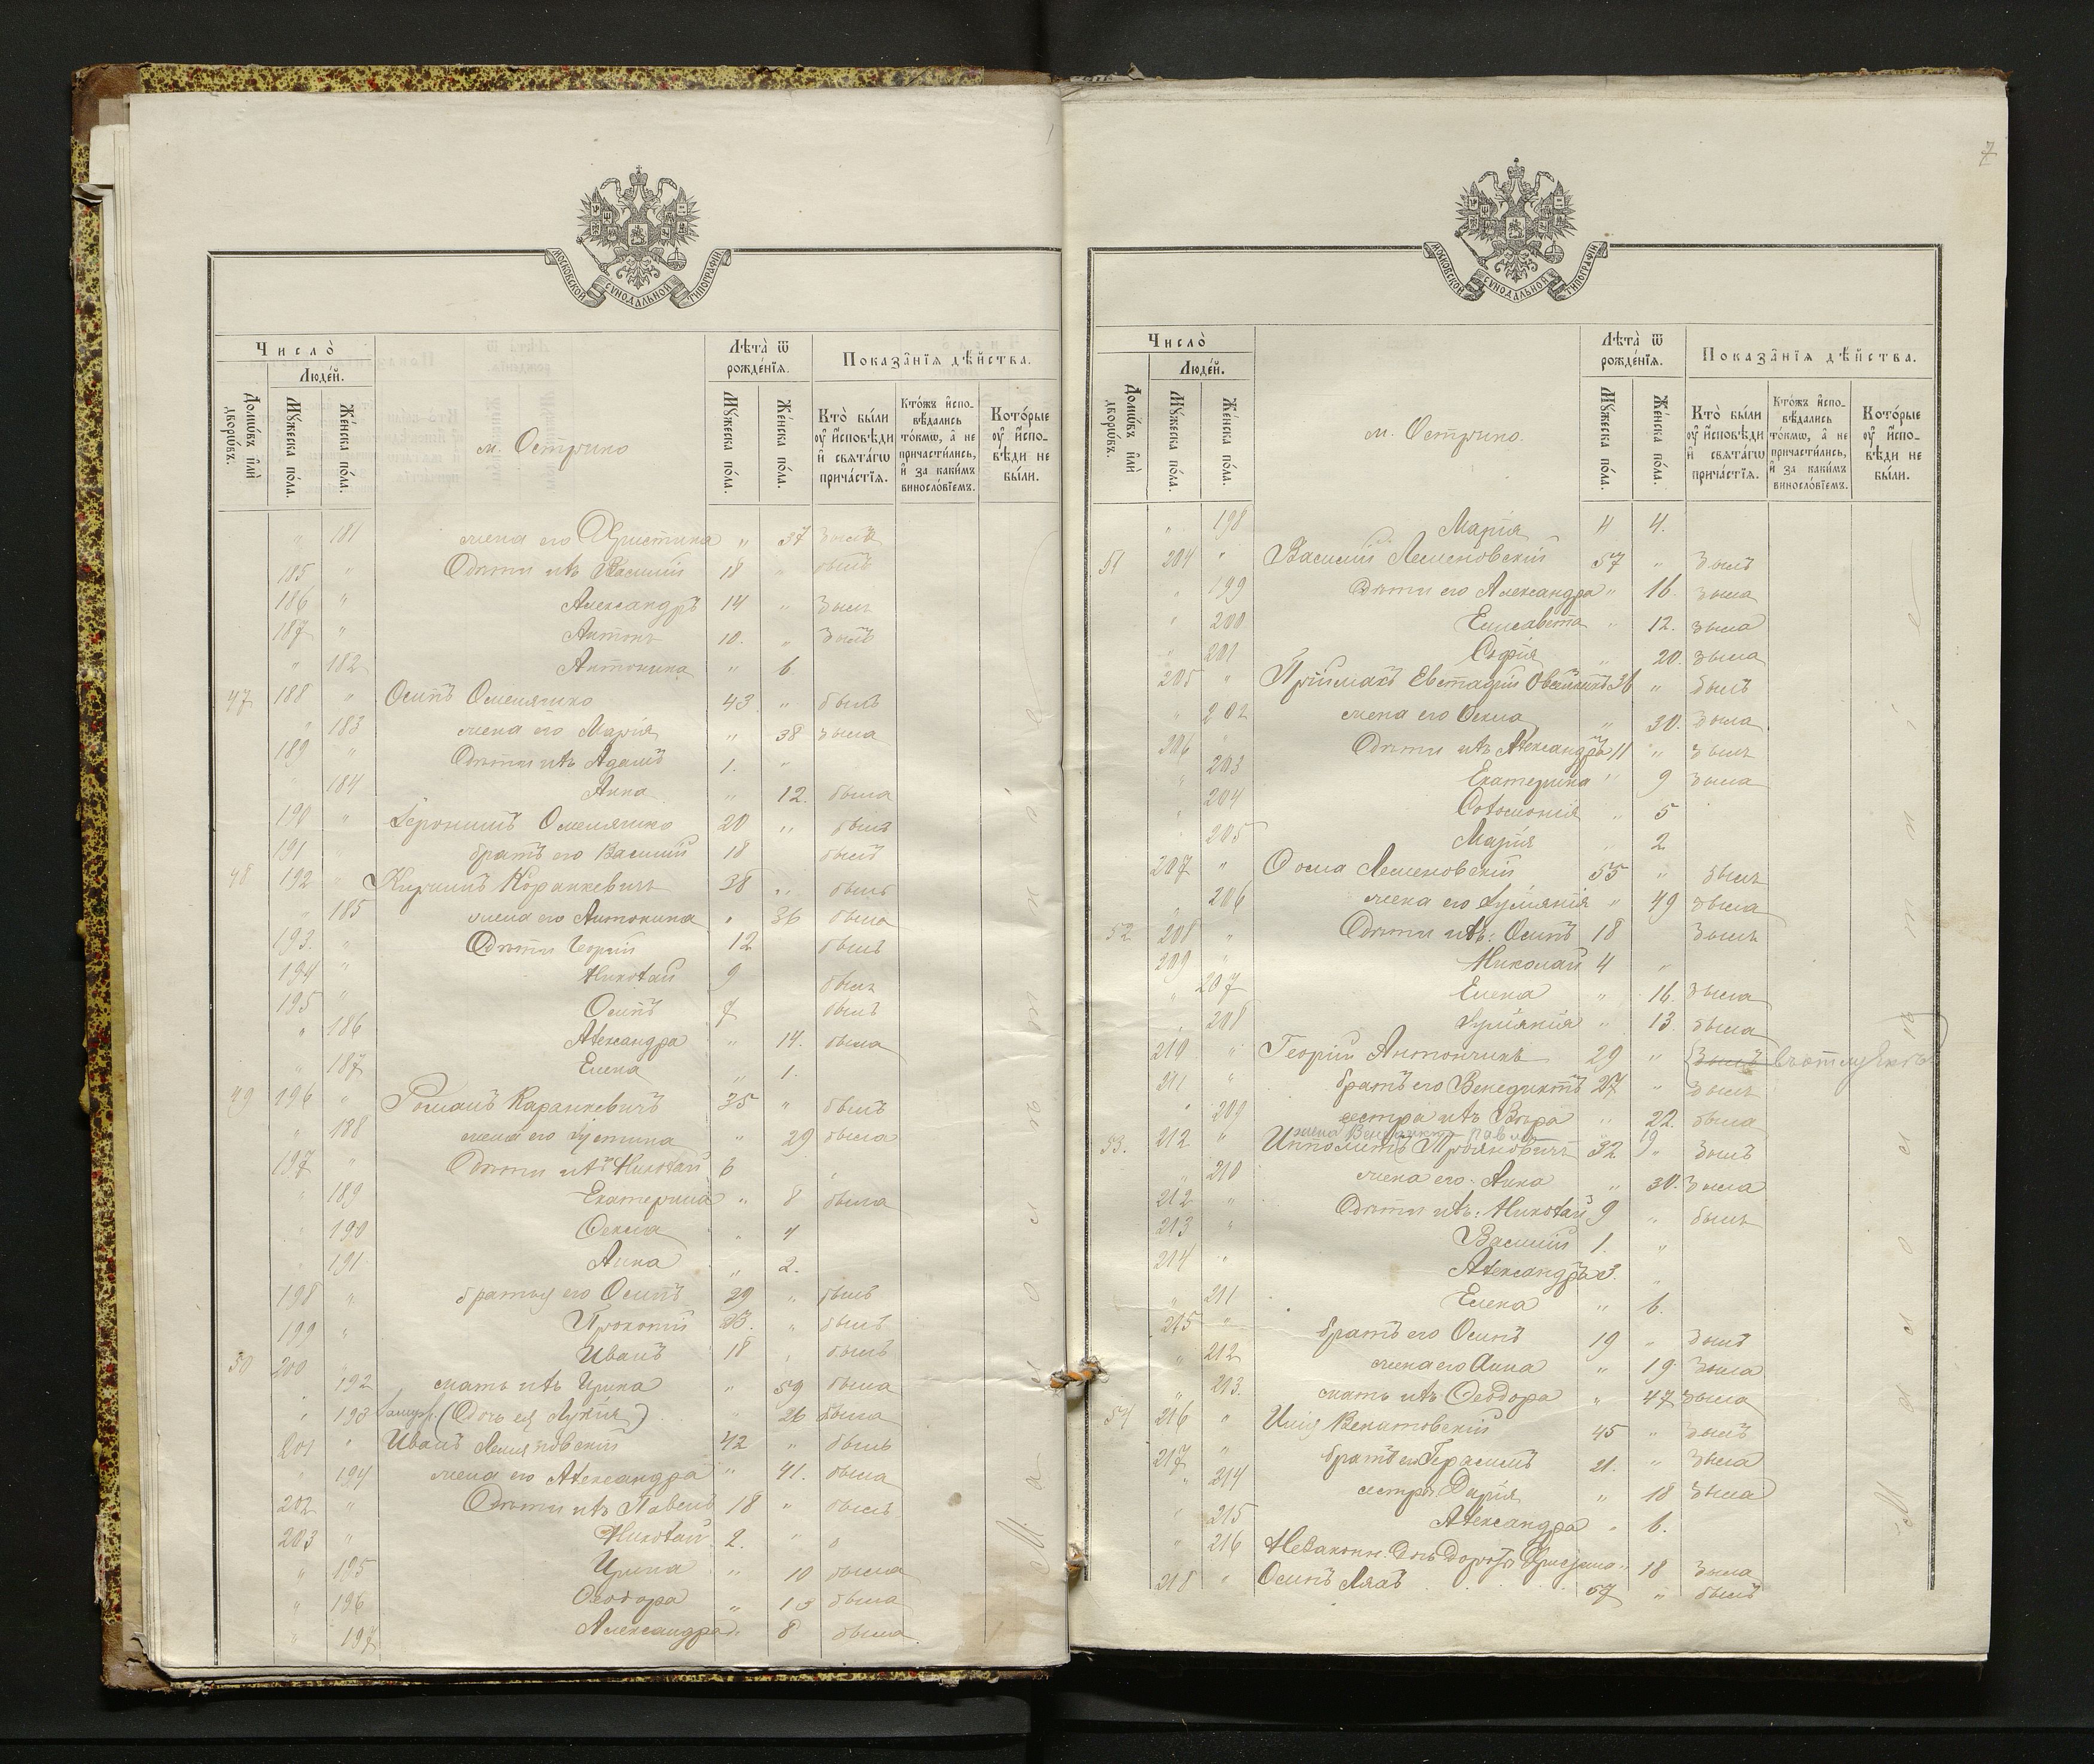 МОСКОВСКОЙ СѴНОДАЛЬНОЙ ТИПОГРАФІИ
Число̀
Людей.
Домѡвъ и҆лѝ дворѡвъ.
Мꙋжеска пола.
Женска пола.
м. Острино
Лѣта̀ ѿ рожденїѧ.
Мꙋжеска пола.
Женска пола.
Показанїѧ дѣйства.
Кто̀ были ᲂу҆ и҆сповѣди и҆ свѧтагѡ причастїѧ.
Ктожъ и҆сповѣдались токмѡ, а҆ не причастились, и҆ за какимъ винословїемъ.
Которые ᲂу҆ и҆сповѣди не были.
" 181 жена его Христина " 37 была
185 " Дѣти ихъ Василій 18 " былъ
186 " Александръ 14 " былъ
187 " Антонъ 10. " былъ
" 182 Антонина " 6
47 188 " Осипъ Омельянко 43 " былъ
" 183 жена его Марія " 38 была
189 " Дѣти ихъ Адамъ 1. "
184 Анна " 12. была
190 " Іеронимъ Омельянко 20 " былъ
191 братъ его Василій 18 былъ
48 192 " Кириллъ Каранкевичъ 38 " былъ
" 185 жена его Антонина " 36 была
193. " Дѣти Георгій 12 былъ
194 " Николай 9 былъ
195 " Осипъ 7 былъ
" 186 Александра " 14. была
" 187 Елена " 1.
49 196 " Романъ Каранкевичъ 35 " былъ
" 188 жена его Іустина " 29 была
197 " Дѣти ихъ Николай 6
" 189 Екатерина " 8 была
" 190 Ѳекла " 4
" 191 Анна " 2.
198 " братья его Осипъ 29 " былъ
199 " Прокопій 23. " былъ
50 200 " Иванъ 18 " былъ
" 192 мать ихъ Ирина " 59 была
" 193 (Дочь ея Лукія) " 26 была
201 " Иванъ 42 " былъ
" 194 жена его Александра " 41. была
202 " Дѣти ихъ Павелъ 18 " былъ
203 " Николай 2. " "
" 195 Ирина " 10 была
" 196 Ѳеодора " 13 была
" 197 Александра " 8 была
7
МОСКОВСКОЙ СѴНОДАЛЬНОЙ ТИПОГРАФІИ
Число̀
Людей.
Домѡвъ и҆лѝ дворѡвъ.
Мꙋжеска пола.
Женска пола.
м. Острино.
Лѣта̀ ѿ рожденїѧ.
Мꙋжеска пола.
Женска пола.
Показанїѧ дѣйства.
Кто̀ были ᲂу҆ и҆сповѣди и҆ свѧтагѡ причастїѧ.
Ктожъ и҆сповѣдались токмѡ, а҆ не причастились, и҆ за какимъ винословїемъ.
Которые ᲂу҆ и҆сповѣди не были.
" 198 Марія " 4.
51 204 " Василій Лешеновскій 57 " былъ
" 199 Дѣти его Александра " 16. была
" 200 Елисавета " 12. была
" 201 Софія " 20. была
205 " Евстафій 36 " былъ
" 202 жена его Ѳекла " 30. была
206 " Дѣти ихъ Александръ 11 " былъ
" 203 Екатерина " 9 была
" 204 Соломонія " 5
" 205 Марія " 2
207 " Ѳома Лешеновскій 55 " былъ
" 206 жена его Іуліанія " 49 была
52 208 " Дѣти ихъ: Осипъ 18 былъ
209 " Николай 4 "
" 207 Елена " 16. была
" 208 Іуліанія " 13. была
210 " Георгій Антончикъ 29 " былъ въ отлучкѣ
211 " братъ его Венедиктъ 27 " былъ
" 209 сестра ихъ Вѣра " 22. была
жена Венедикта 19
53. 212. " Ипполитъ Трояновичъ 32 " былъ
" 210 жена его Анна " 30. была
212 " Дѣти ихъ: Николай 9 " былъ
213 " Василій 1. "
214 " Александръ 3. "
" 211 Елена " 6.
215 " братъ его Осипъ 19 " былъ
" 212 жена его Анна " 19. была
" 213. мать ихъ Ѳеодора " 47 была
54 216 " Илія 45 " былъ
217 " братъ его Герасимъ 21. " была
" 214 сестра Дарія " 18 была
" 215 Александра " 6.
" 216 Незаконн. дочь " 18 была
218 " Осипъ Ляхъ 57 " былъ